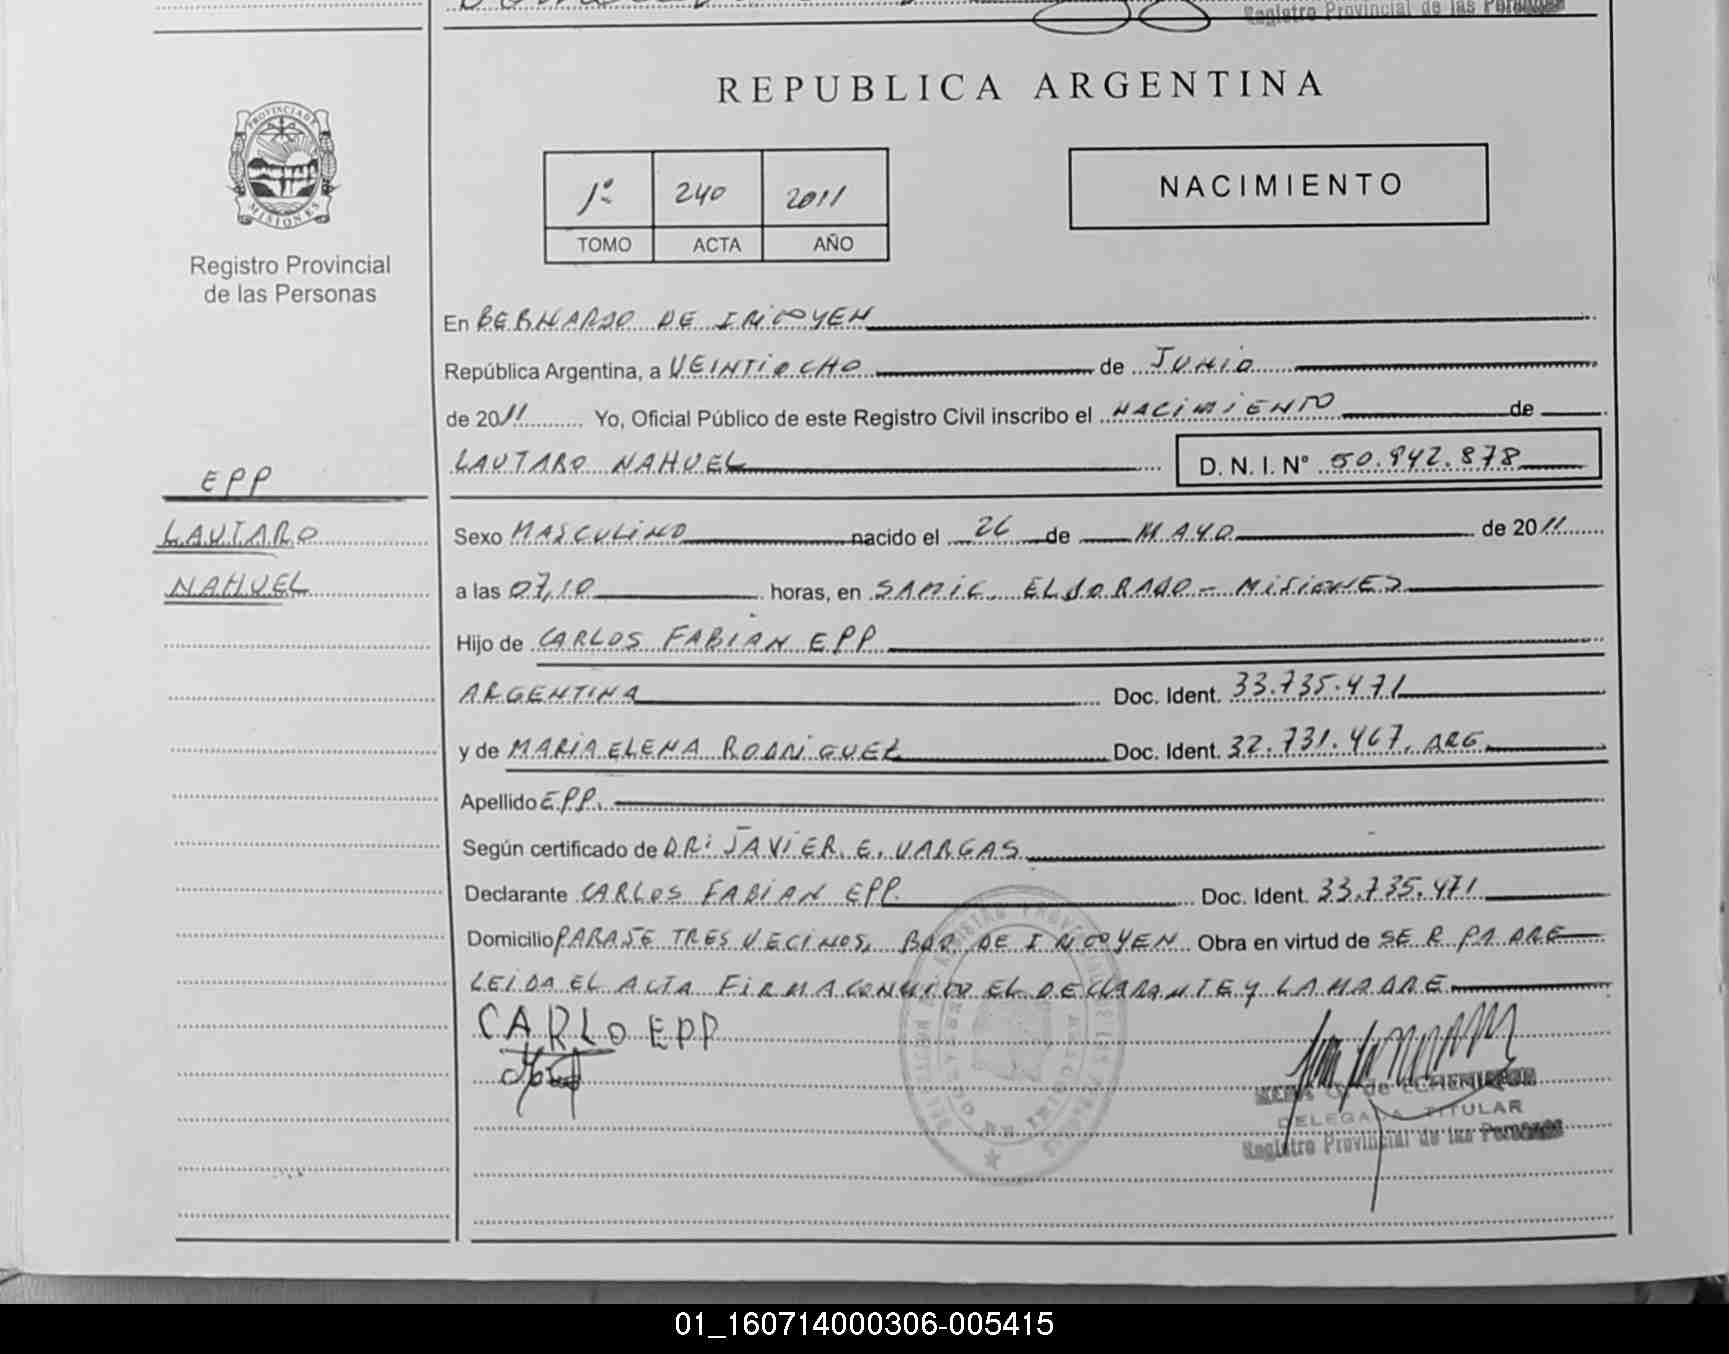 Registro Provincial de las Personas
REPUBLICA ARGENTINA
PROVINCIA DE
MISIONES
Registro Provincial
de las Personas
1º 240 2011
TOMO ACTA AÑO
NACIMIENTO
En BERNARDO DE IRIGOYEN
República Argentina, a VEINTIOCHO de JUNIO
de 2011 Yo, Oficial Público de este Registro Civil inscribo el NACIMIENTO de
LAUTARO NAHUEL D. N. I. Nº 50.942.878
EPP
LAUTARO
NAHUEL
Sexo MASCULINO nacido el 26 de MAYO de 2011
a las 07,10 horas, en SAMIC. ELDORADO - MISIONES
Hijo de CARLOS FABIAN EPP
ARGENTINA Doc. Ident. 33.735.471
y de MARIA ELENA RODRIGUEZ Doc. Ident. 32.731.467. ARG
Apellido EPP.
Según certificado de DR: JAVIER E. VARGAS
Declarante CARLOS FABIAN EPP. Doc. Ident. 33.735.471
Domicilio PARAJE TRES VECINOS, BDO DE IRIGOYEN Obra en virtud de SER PADRE
LEIDA EL ACTA FIRMA CONMIGO EL DECLARANTE Y LA MADRE
CARLO EPP
DELEGADA TITULAR
Registro Provincial de las Personas
01_160714000306-005415